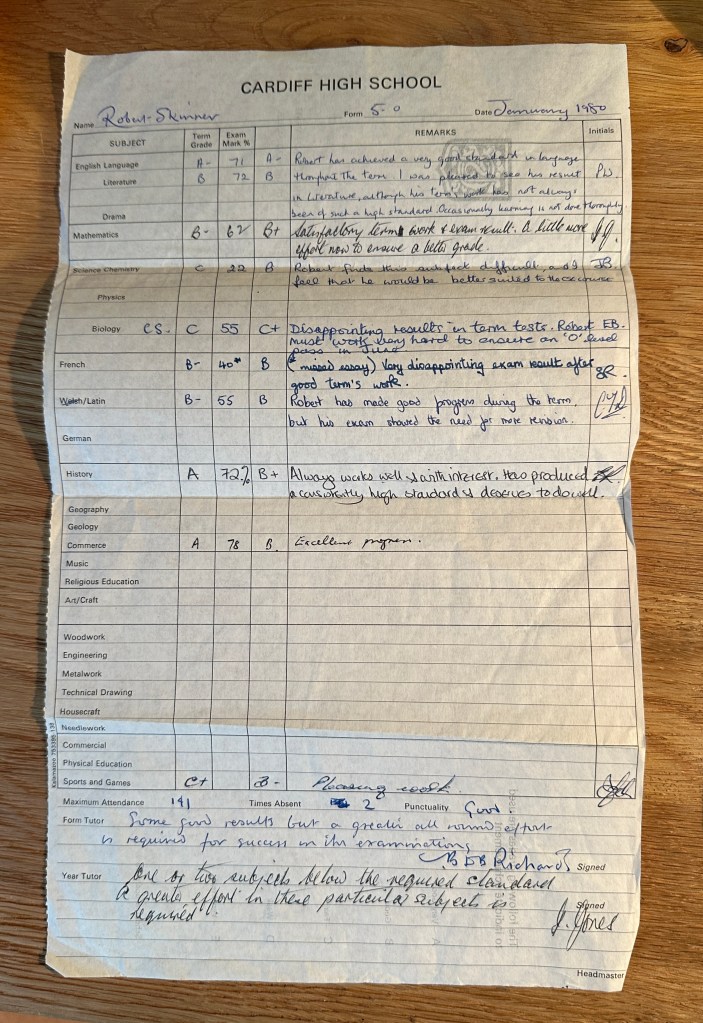 CARDIFF HIGH SCHOOL
Name Robert Skinner Form 5-O Date January 1980
SUBJECT Term Grade Exam Mark % REMARKS Initials
English Language A- 71 A- Robert has achieved a very good standard in language
Literature B 72 B throughout the term. I was pleased to see his result PW.
in Literature, although his term's work has not always
Drama been of such a high standard. Occasionally learning is not done thoroughly.
Mathematics B- 62 B+ Satisfactory term's work & exam result. A little more
effort now to ensure a better grade.
Science Chemistry C 22 B Robert finds this subject difficult, and I JB.
feel that he would be better suited to the course
Physics
Biology CS. C 55 C+ Disappointing results in term tests. Robert EB.
must work very hard to ensure an 'O' level
pass in June
French B- 40* B (* missed essay) Very disappointing exam result after
good term's work. SR.
Welsh/Latin B- 55 B Robert has made good progress during the term
but his exam showed the need for more revision.
German
History A 72% B+ Always works well & with interest. Has produced
a consistently high standard & deserves to do well.
Geography
Geology
Commerce A 78 B. Excellent progress.
Music
Religious Education
Art/Craft
Woodwork
Engineering
Metalwork
Technical Drawing
Housecraft
Needlework
Commercial
Physical Education
Sports and Games C+ B- Pleasing work.
Maximum Attendance 141 Times Absent 2 Punctuality Good.
Form Tutor Some good results but a greater all round effort
is required for success in the examination,
B E B Richards Signed
Year Tutor One or two subjects below the required standard
A greater effort in these particular subjects is
required. J. Jones Signed
Headmaster
Kalamazoo